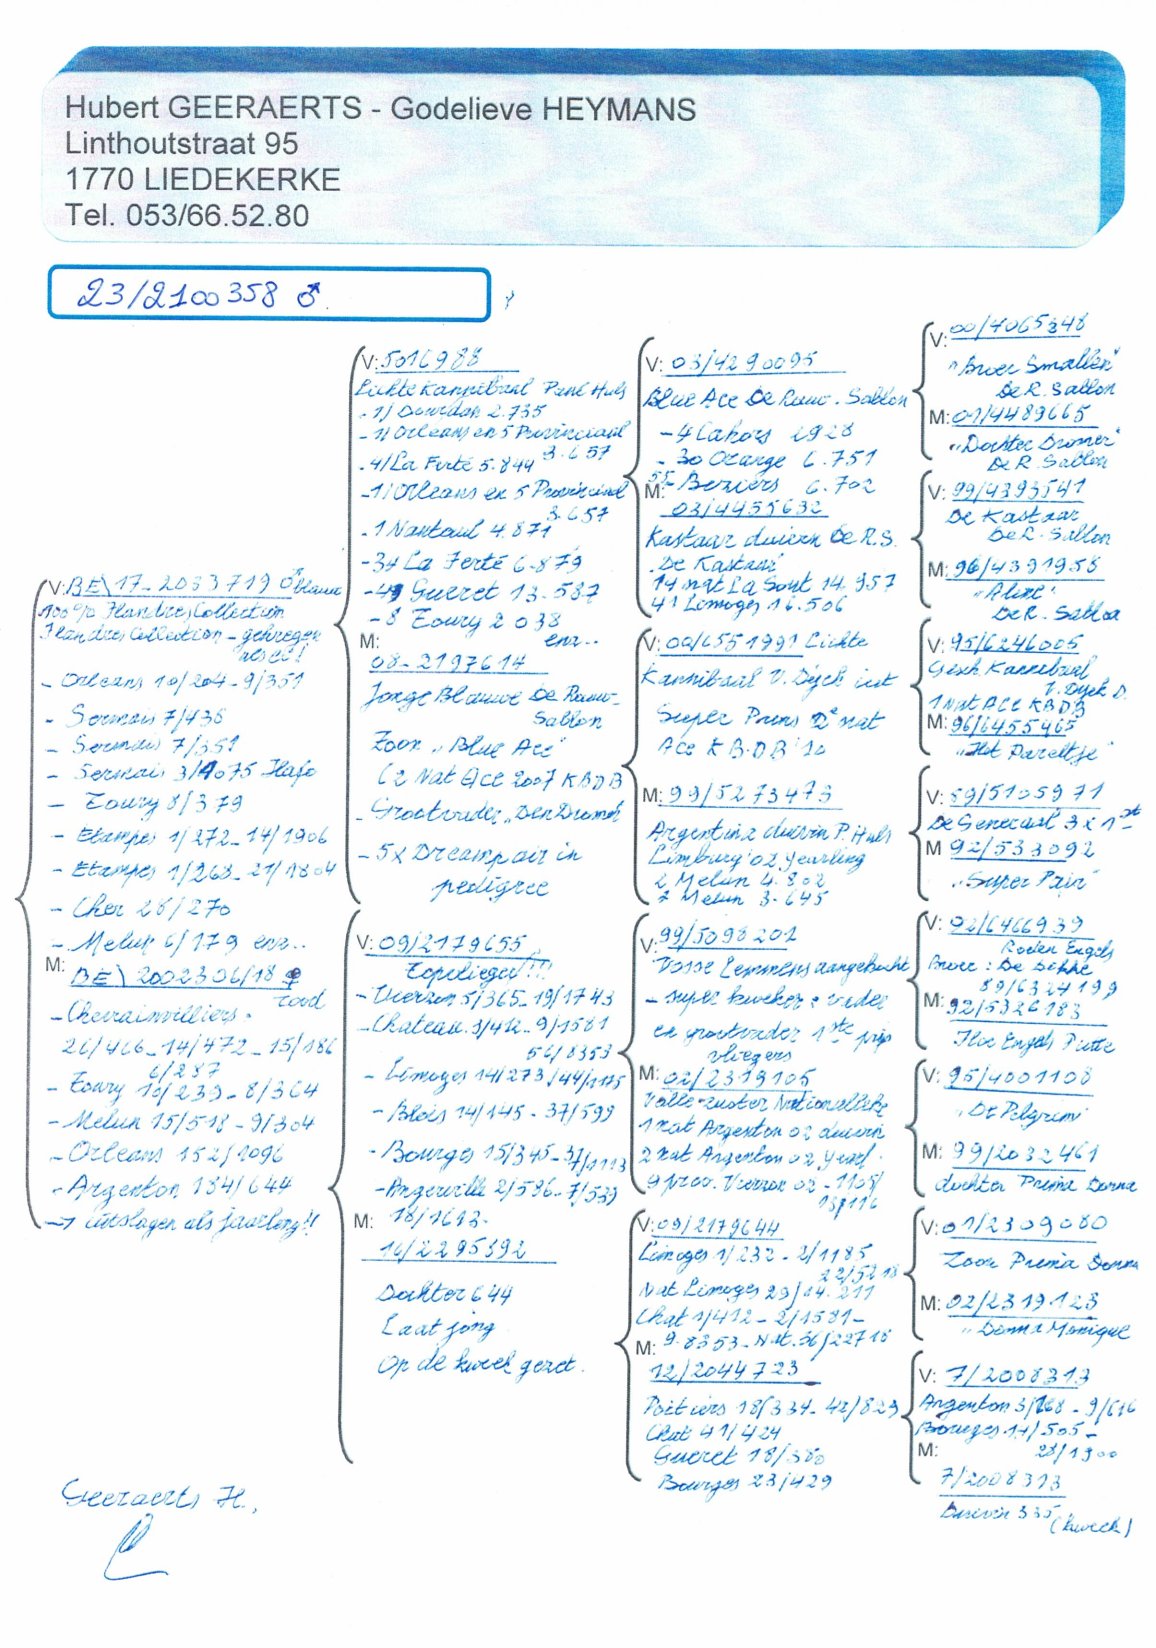 Hubert GEERAERTS - Godelieve HEYMANS
Linthoutstraat 95
1770 LIEDEKERKE
Tel. 053/66.52.80
23/2100358 ♂
V: BE\17-2083719 ♂ blauw
100% Flandres Collection
Flandres Collection - gekregen
als ei!
- Orleans 10/204-9/351
- Sermais 7/438
- Sermais 7/351
- Toury 8/379
- Etampes 1/272-14/1906
- Etampes 1/268-21/1804
- Cher 28/270
- Melun 6/179 enz..
M: BE\2002306/18 ♀
rood
26/466-14/472-15/186
6/287
- Toury 10/239-8/364
- Melun 15/518-9/304
- Orleans 152/1096
- Argenton 184/644
→ uitslagen als jaarling!!
V: 5016988
Lichte Kannibaal Paul Huls
- 1/ Dourdan 2.735
- 1/ Orleans en 5 Provinciaal
3.657
- 4/La Ferté 5.844
- 1/ Orleans en 5 Provinciaal
3.657
- 1 Nanteuil 4.871
- 34 La Ferté 6.879
- 49 Gueret 13.587
- 8 Toury 2038
enz..
M:
08-2197614
Jonge Blauwe De Rauw-
Sablon
Zoon "Blue Ace"
(2 Nat Ace 2007 KBDB
- Grootvader "Den Dromer
- 5x Dreampair in
pedigree
V: 09/2179655
Topvlieger!!!
- Vierzon 5/365-19/1743
- Chateau. 3/412-9/1581
56/8353
- Limoges 14/273/44/1175
- Blois 14/145-37/599
- Bourges 15/345-37/1113
- Angerville 2/586-7/539
M: 18/1613.
16/2295392
Dochter 644
Laat jong
Op de kweek gezet.
V: 03/4290095
Blue Ace De Rauw-Sablon
- 4 Cahors 1928
- 30 Orange 6.751
55 Beziers 6.702
M:
03/4455632
Kastaar duivin De R.S.
"De Kastaar"
14 nat La Sout 14.957
41 Limoges 16.506
V: 00/6551991 Lichte
Kannibaal V. Dyck uit
Super Prins 2e nat
Ace KBDB '10
M: 99/5273473
Argentina duivin P. Huls
Limburg '02 Yearling
2 Melun 4.802
7 Melun 3.645
V: 99/5098201
Vosse Lemmens aangekocht
- super kweker = vader
en grootvader 1ste prijs
vliegers
M: 02/2319105
Volle zuster Nationalleke
1 nat Argenton 02 duivin
2 nat Argenton 02 Yearl.
9 prov. Vierzon 02-1105/
V: 09/2179644
Limoges 1/232-2/1185
22/5218
Nat Limoges 29/
Chat 1/412-2/1581-
M: 9.8353-Nat.56/22718
12/2044723
Poitiers 18/334-42/829
Chat 41/424
Gueret 18/380
Bourges 23/429
V: 00/4065348
"Broer Smallen"
De R. Sablon
M: 01/4489665
"Dochter Dromer"
De R. Sablon
V: 99/4393541
De Kastaar
De R. Sablon
M: 96/4391958
"Aline"
De R. Sablon
V: 95/6246005
Gesch Kannibaal
V. Dyck D.
1 Nat Ace KBDB
M: 96/6455465
"Het Pareltje"
V: 89/5105971
De Generaal 3x1ste
M 92/533092
"Super Pair"
V: 92/6466939
Roden Engels
Broer: De Dikke
89/6324199
M: 92/5326183
Engels Putte
V: 95/4001108
"De Pelgrim"
M: 99/2032461
dochter Prima Donna
V: 01/2309080
Zoon Prima Donna
M: 02/2319123
"Donna Monique
V: 7/2008313
Argenton 3/168-9/616
Bourges 14/505-
M: 28/1900
7/2008313
Duivin 335
(kweek)
Geeraerts H.,